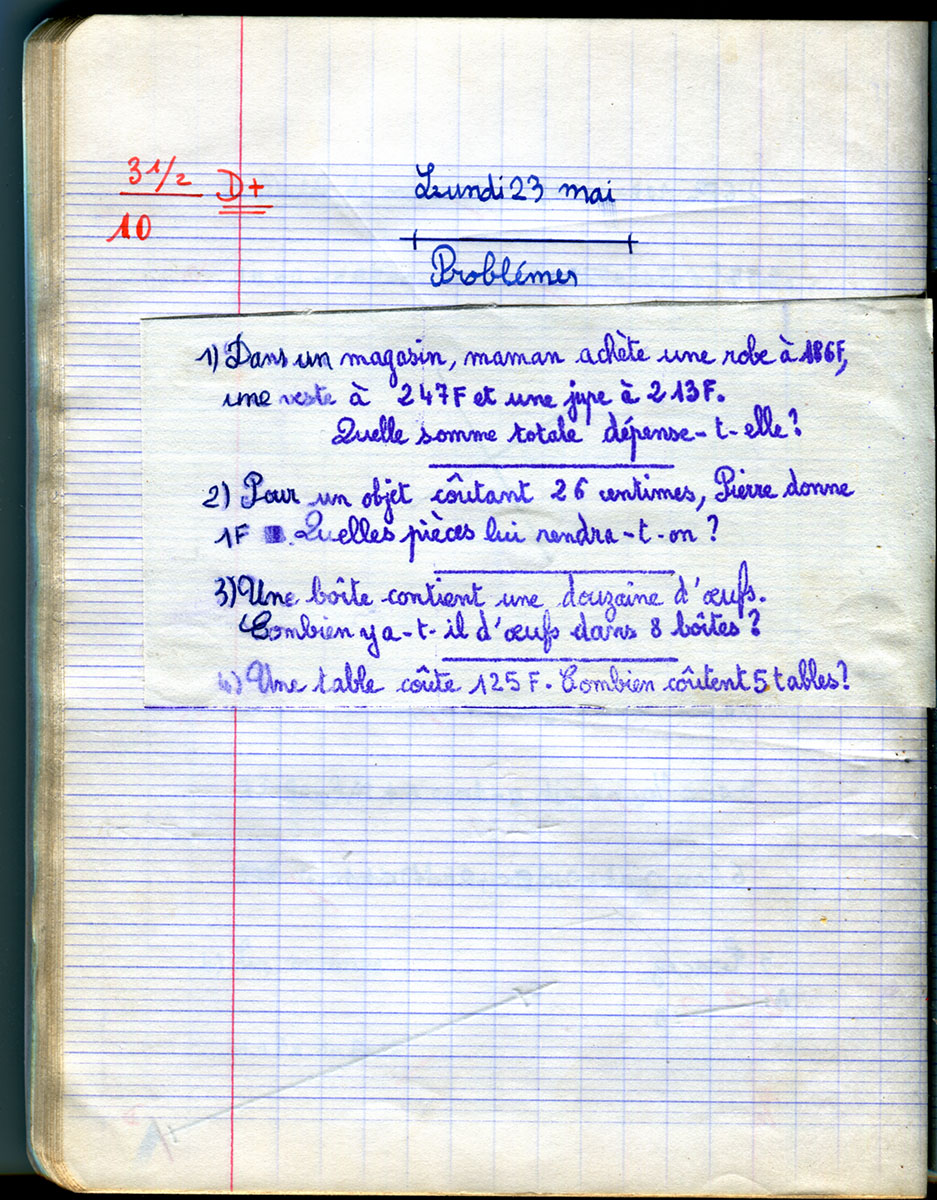 3 1/2 D+
10
Lundi 23 mai
Problémes
1) Dans un magasin, maman achète une robe à 186F,
une veste à 247F et une jupe à 213F.
Quelle somme totale dépense-t-elle?
2) Pour un objet côutant 26 centimes, Pierre donne
1F . Quelles pièces lui rendra-t-on?
3) Une boîte contient une douzaine d'œufs.
Combien y a-t-il d'œufs dans 8 boîtes?
4) Une table coûte 125F. Combien côutent 5 tables?